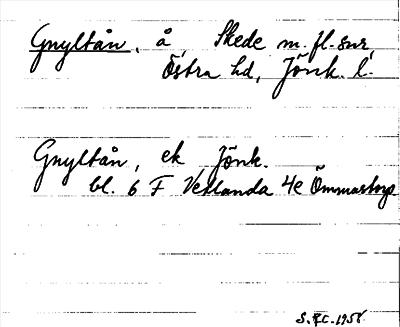 Gnyltån, å, Skede m.fl. snr,
Östra hd, Jönk. l.
Gnyltån, ek Jönk.
bl. 6 F Vetlanda 4e Ömmastorp
1958